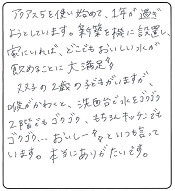 アクアス5を使い始めて、1年が過ぎ
ようとしています。新築を機に設置し、
家にいれば、どこでもおいしい水が
飲めることに大満足♪
2才の子どもがいますが、
喉がかわくと、洗面台で水をゴクゴク
2階でもゴクゴク、もちろんキッチンでも
ゴクゴク…おいしーな〜といつも言って
います。本当にありがたいです。